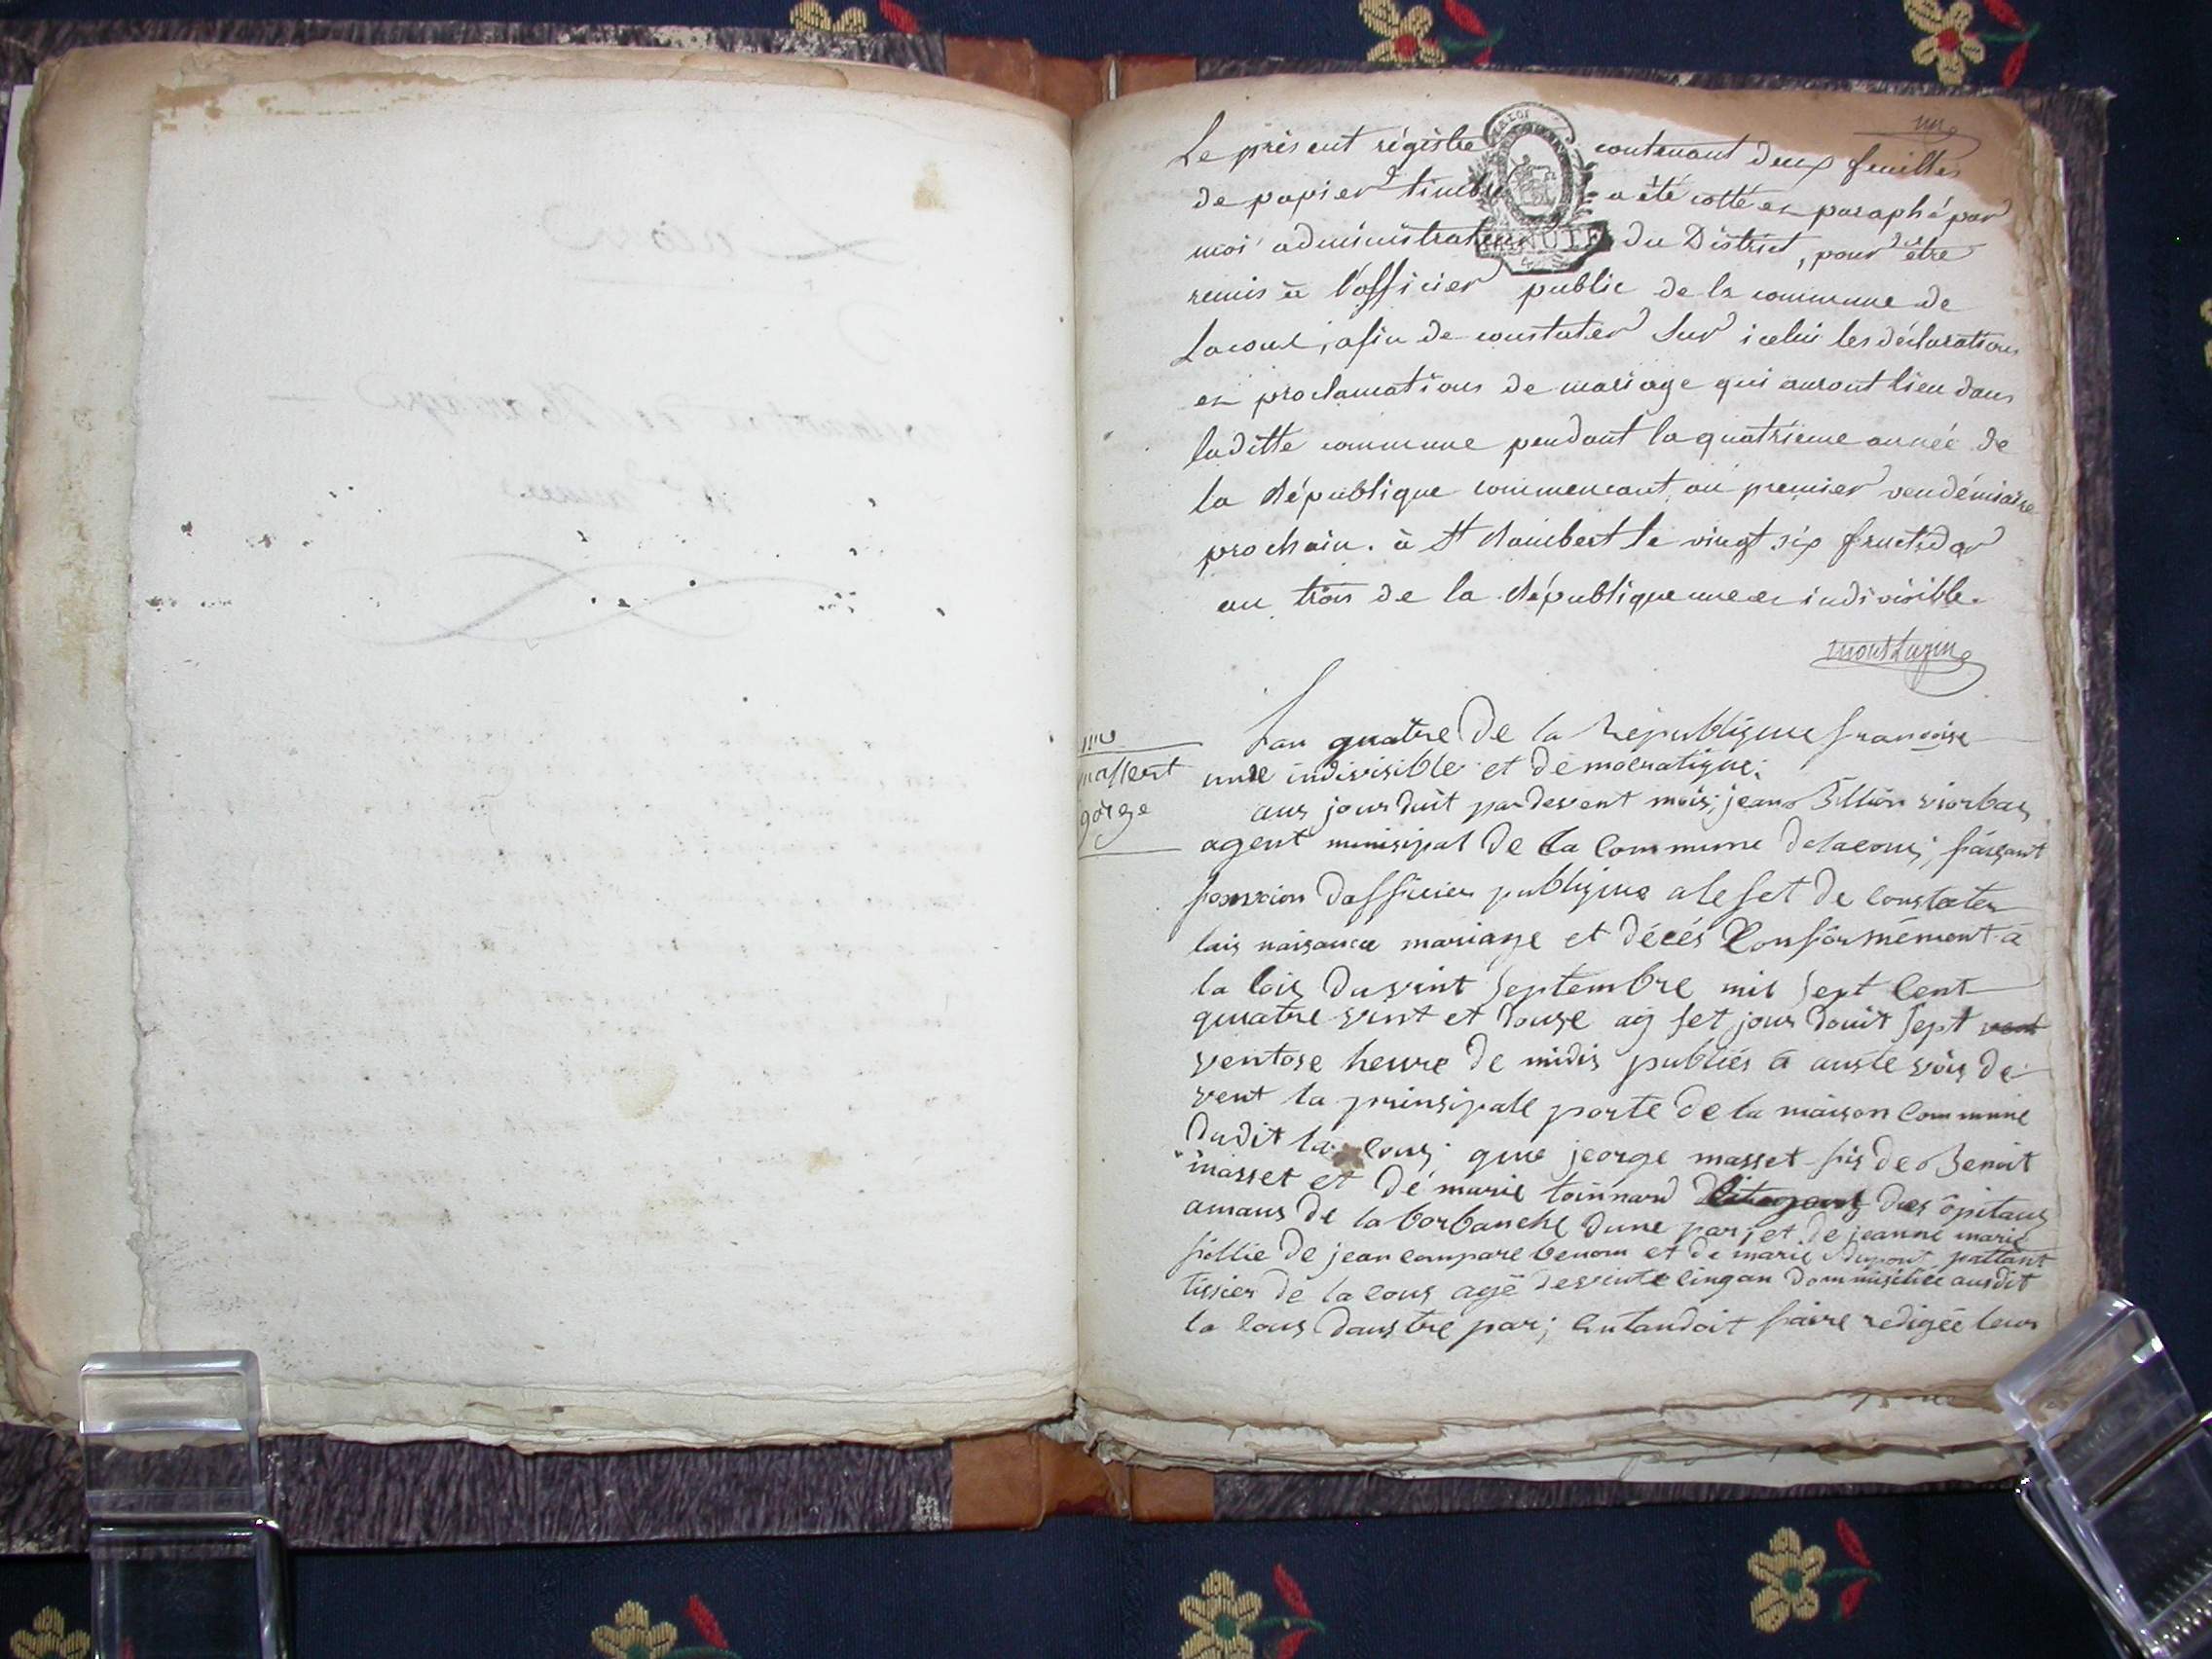 Le présent régistre contenant deux feuilles
de papier timbré a été cotté et paraphé par
moi administrateur du District, pour être
MINUTE
remis à l'officier public de la commune de
Lacoux, afin de constater sur icelui les déclarations
et proclamations de mariage qui auront lieu dans
laditte commune pendant la quatrième année de
la république commencant au premier vendémiaire
prochain. à St Rambert le vingt six fructidor
an trois de la république une et indivisible.
Lan quatre De la République francoise
unne indivisible et démocratique;
aus jourduit pardevent mois, jean
agent munisipal De la Commune Delacous; faisant
fonxion Dofficier publique alefet De Constater
lais naisance mariage et décés Conformément à
la lois Du vint septembre mil sept Cent
quatre vint et Douze aij set jour Douit sept vent
ventose heure De midis publiés a auste vois De
vent la prinsipale porte De la maison Commune
Dudit la Cous; que jeorge masset fis De Benoit
masset et De marie toinnard Des ôpitaus
amans De la borbanche Dune par; et De jeanne marie
fillie De jean et De marie Dupont
tissier De la Cous agé De vinte Cinq an Dommisiliée ausdit
la Cous Daustre par; Entandoit faire redigée leur
masset
gorge